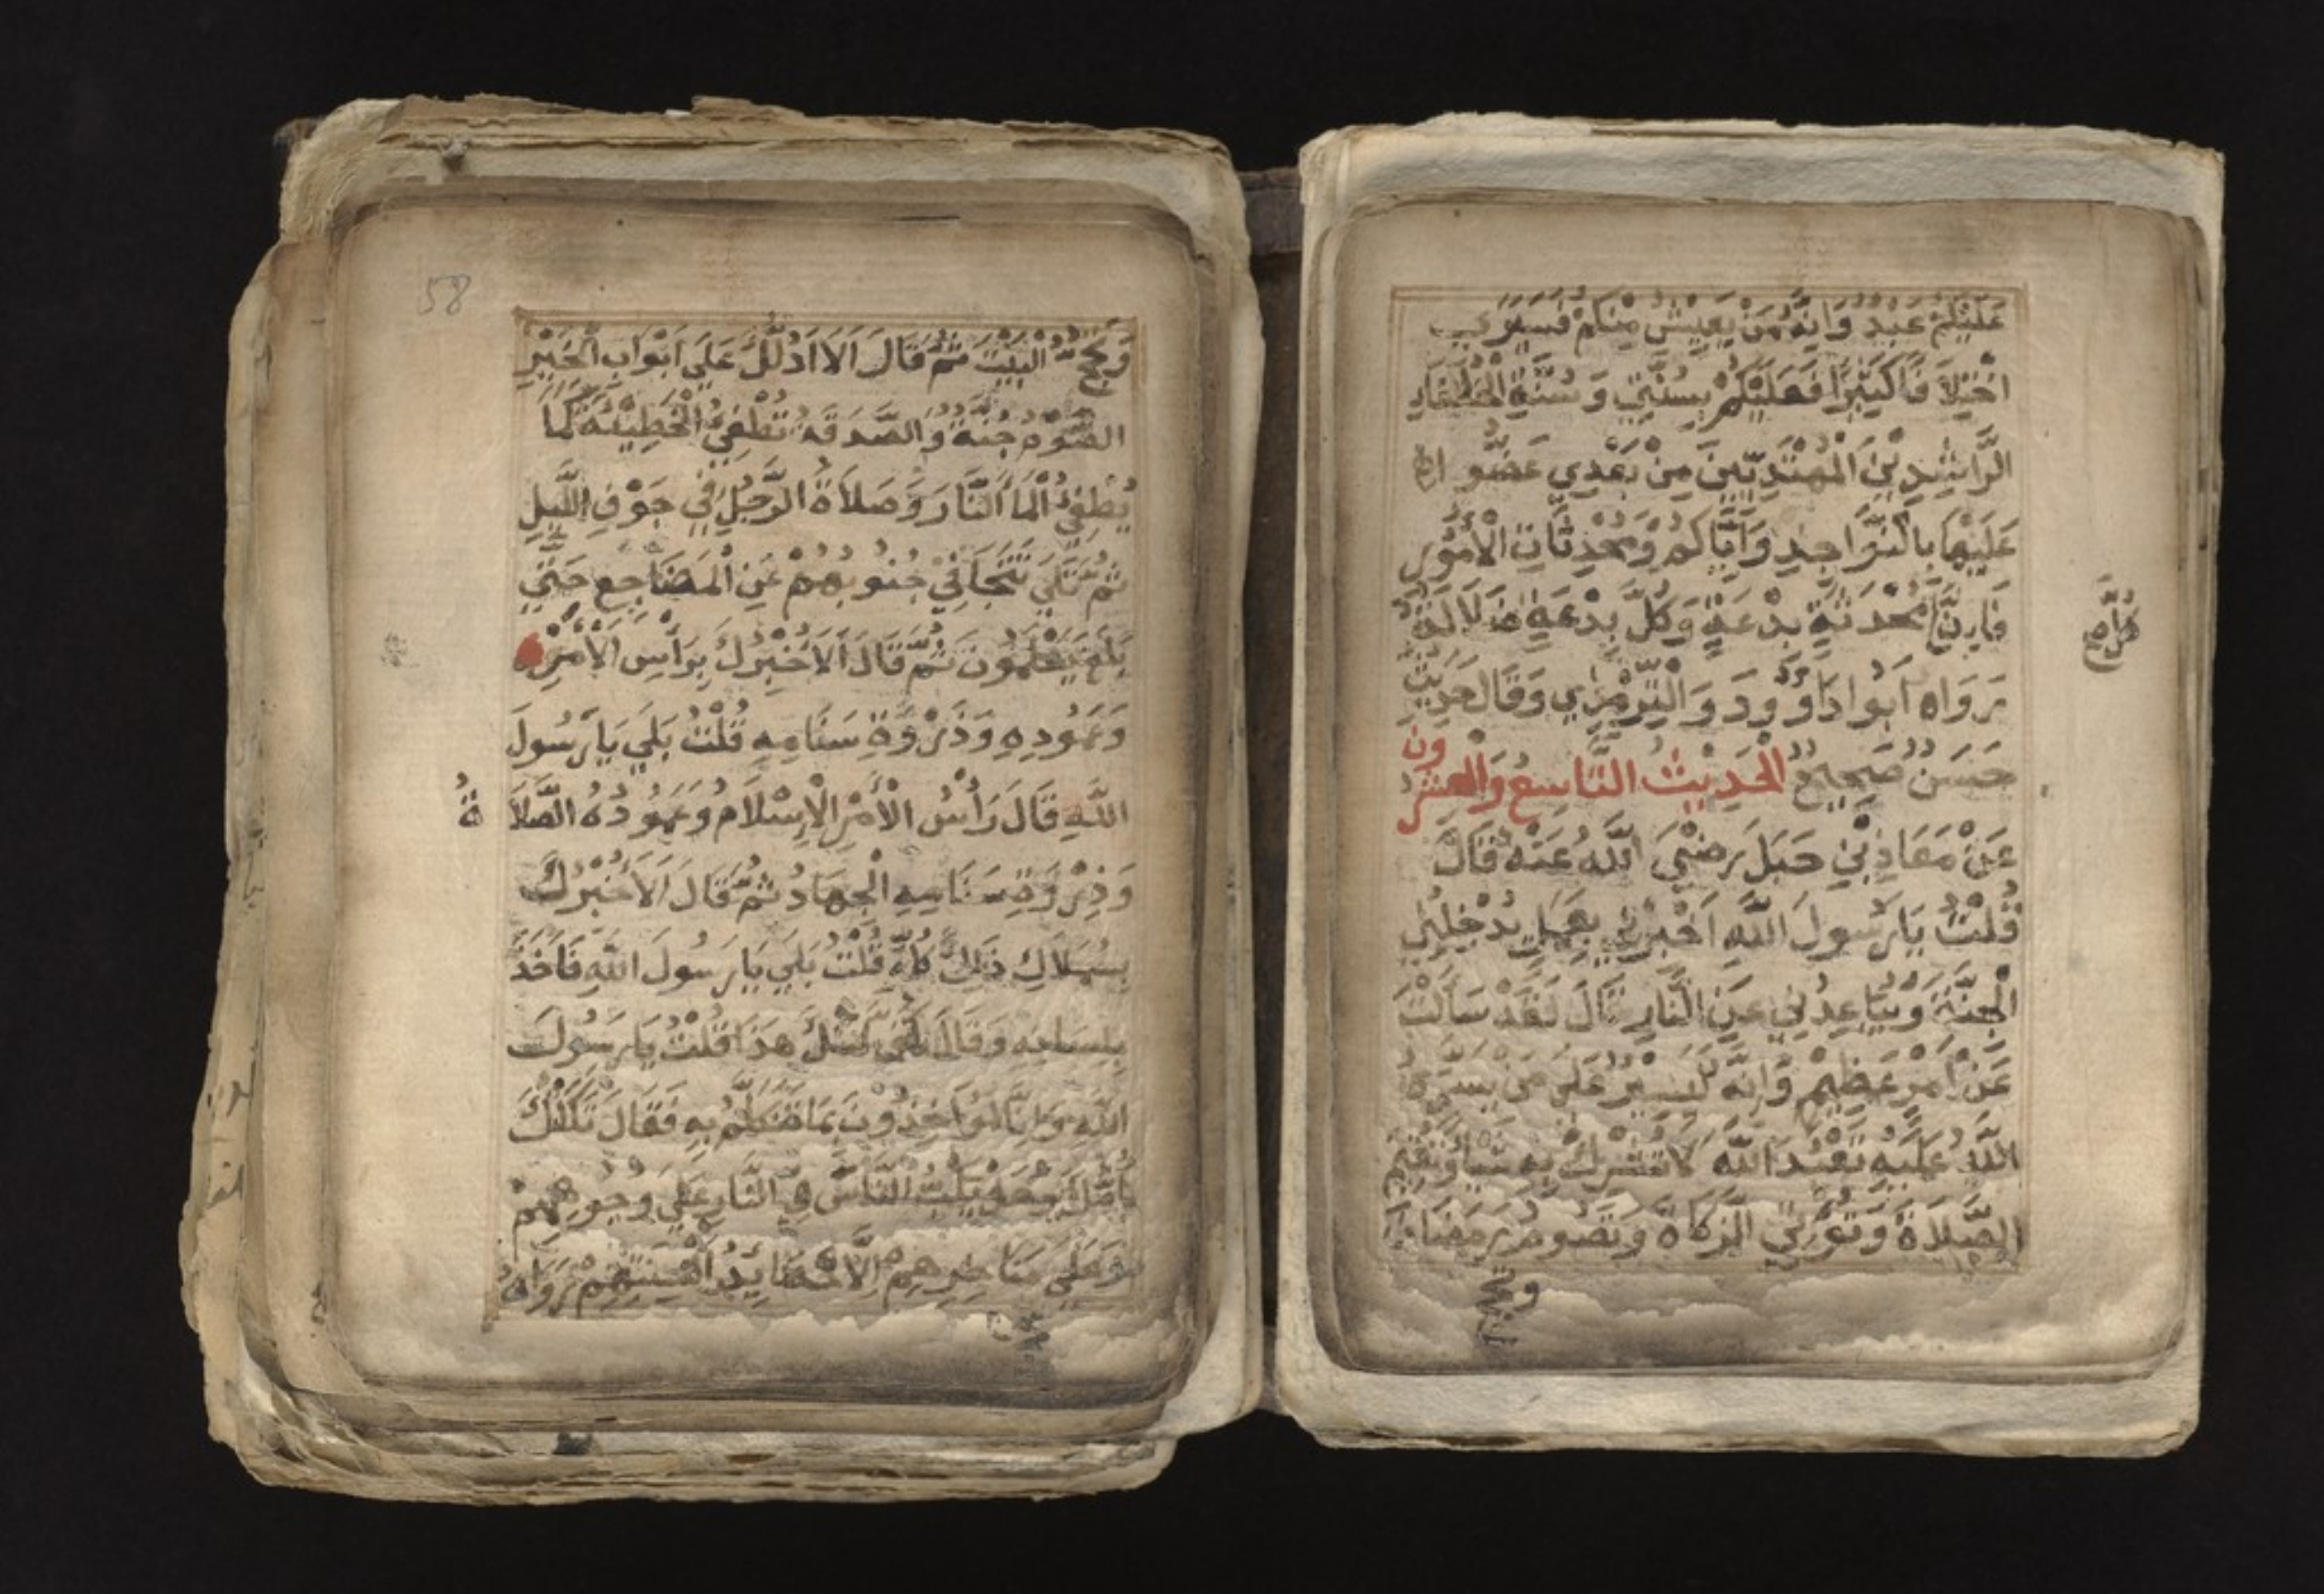 عَلَيْكُمْ عَبْدٌ وَاِنَّهُ مَنْ يَعِيشُ مِنْكُمْ فَسَيَرَي
اخْتِلَافًا كَثِيْرًا فَعَلَيْكُمْ بِسُنَّتِي وَسُنَّةِ الْخُلَفَاءِ
الرَّاشِدِيْنَ الْمَهْتَدِيِّيْنَ مِنْ بَعْدِي عَضُّوا
عَلَيْهَا بِالنَّوَاجِدِ وَاِيَّاكُمْ وَمُحْدِثَاتِ الْأُمُوْرِ
فَاِنَّ مُحْدَثَةٍ بِدْعَةٍ وَكُلَّ بِدْعَةٍ ضَلَالَةٌ
كُلَّ
رَوَاهُ اَبُوا دَاوُودَ وَالتِّرْمِزِي وَقَالَ حَدِيْثٌ
حَسَنٌ صَحِيْحٌ الْحَدِيْثُ التَّاسِعُ وَالْعِشْرُونَ
عَنْ مَعَاذِ بْنِ جَبَلَ رَضِيَ اللَّهُ عَنْهُ قَالَ
قُلْتُ يَارَسُولَ اللَّهِ اَخْبِرْنِي بِعَمَلٍ يُدْخِلُنِي
الْجَنَّةَ وَيُبَاعِدُنِي عَنِ النَّارِ قَالَ لَقَدْ سَاَلْتَ
عَنْ اَمْرٍ عَظِيْمٍ وَاِنَّهُ لَيَسِيْرٌ عَلَى مَنْ يَسَّرَهُ
اللَّهُ عَلَيْهِ تَعْبُدَ اللَّهَ لَا تُشْرِكُ بِهِ شَيْأً وَتُقِيْمُ
الصَّلَاةَ وَتُؤْتِي الزَّكَاةَ وَتَصُومُ رَمَضَانَ
وَتَحُجُّ
58
وَتَحُجُّ الْبَيْتَ ثُمَّ قَالَ اَلَا اَدُلُّكَ عَلَي اَبْوَابِ الْخَيْرِ
الصَّوْمُ جُنَّةٌ وَالصَّدَقَةُ تُطْفِئُ الْخَطِيْئَةَ كَمَا
يُطْفِئُ الْمَاُ النَّارَ وَصَلَاةُ الرَّجُلِ فِي جَوْفِ اللَّيْلِ
ثُمَّ تَلَي تَتَجَافَى جُنُوبُهُمْ عَنِ الْمَضَاجِعِ حَتَّي
بَلَغَ يَعْلَمُونَ ثُمَّ قَالَ اَلَا اُخْبِرُكَ بِرَأْسِ الْأَمْرِ
وَعَمُودِهِ وَذَرْوَةِ سَنَامِهِ قُلْتُ بَلَي يَارَسُولَ
اللَّهِ قَالَ رَأْسُ الْأَمْرِ الْاِسْلَامُ وَعَمُودُهُ الصَّلَاةُ
وَذِرْوَةِ سَنَامِهِ الْجِهَادُ ثُمَّ قَالَ اَلَا اُخْبِرُكَ
بِمَلَاكِ ذَلِكَ كُلِّهِ قُلْتُ بَلَي يَارَسُولَ اللَّهِ فَاَخَذَ
بِلِسَانِهِ وَقَالَ كُفَّ عَلَيْكَ هَذَا قُلْتُ يَارَسُولَ
اللَّهِ وَاِنَّا لَمُؤَاخِذُوْنَ بِمَا نَتَكَلَّمُ بِهِ فَقَالَ ثَكَلَتْكَ
اُمُّكَ وَهَلْ يَكُبُّ النَّاسَ فِي النَّارِ عَلَي وُجُوهِهِمْ
اَوْ عَلَي مَنَاخِرِهِمْ اِلَّا حَصَايِدُ اَلْسِنَتِهِمْ رَوَاهُ